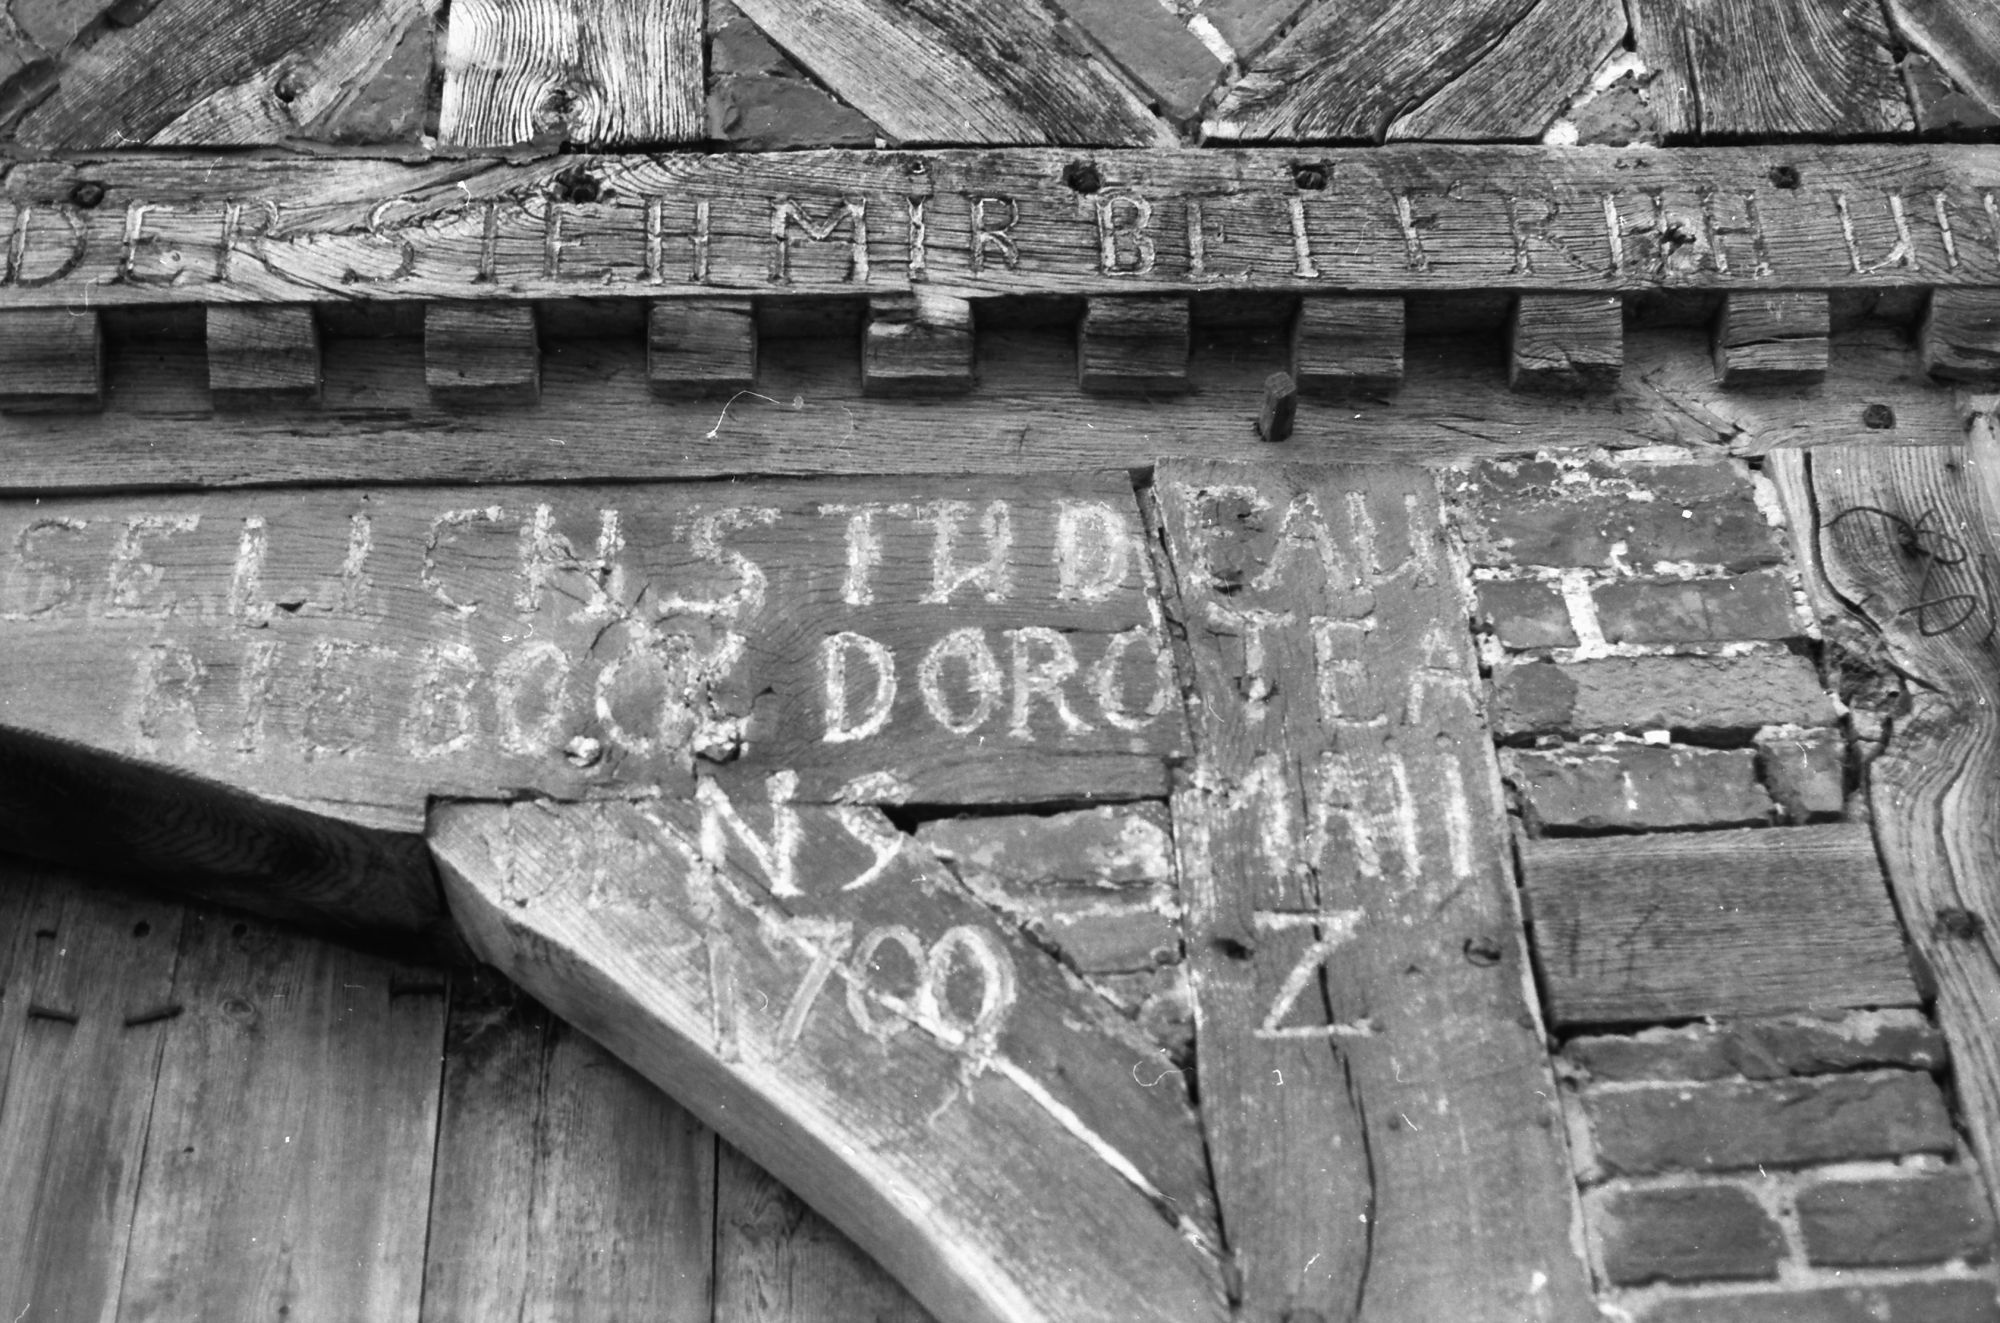 DER STEH MIR BEI FREH UN
SELICH STHD FAU
RIEBOCK DOROTEA
DENS MAI
1700 Z